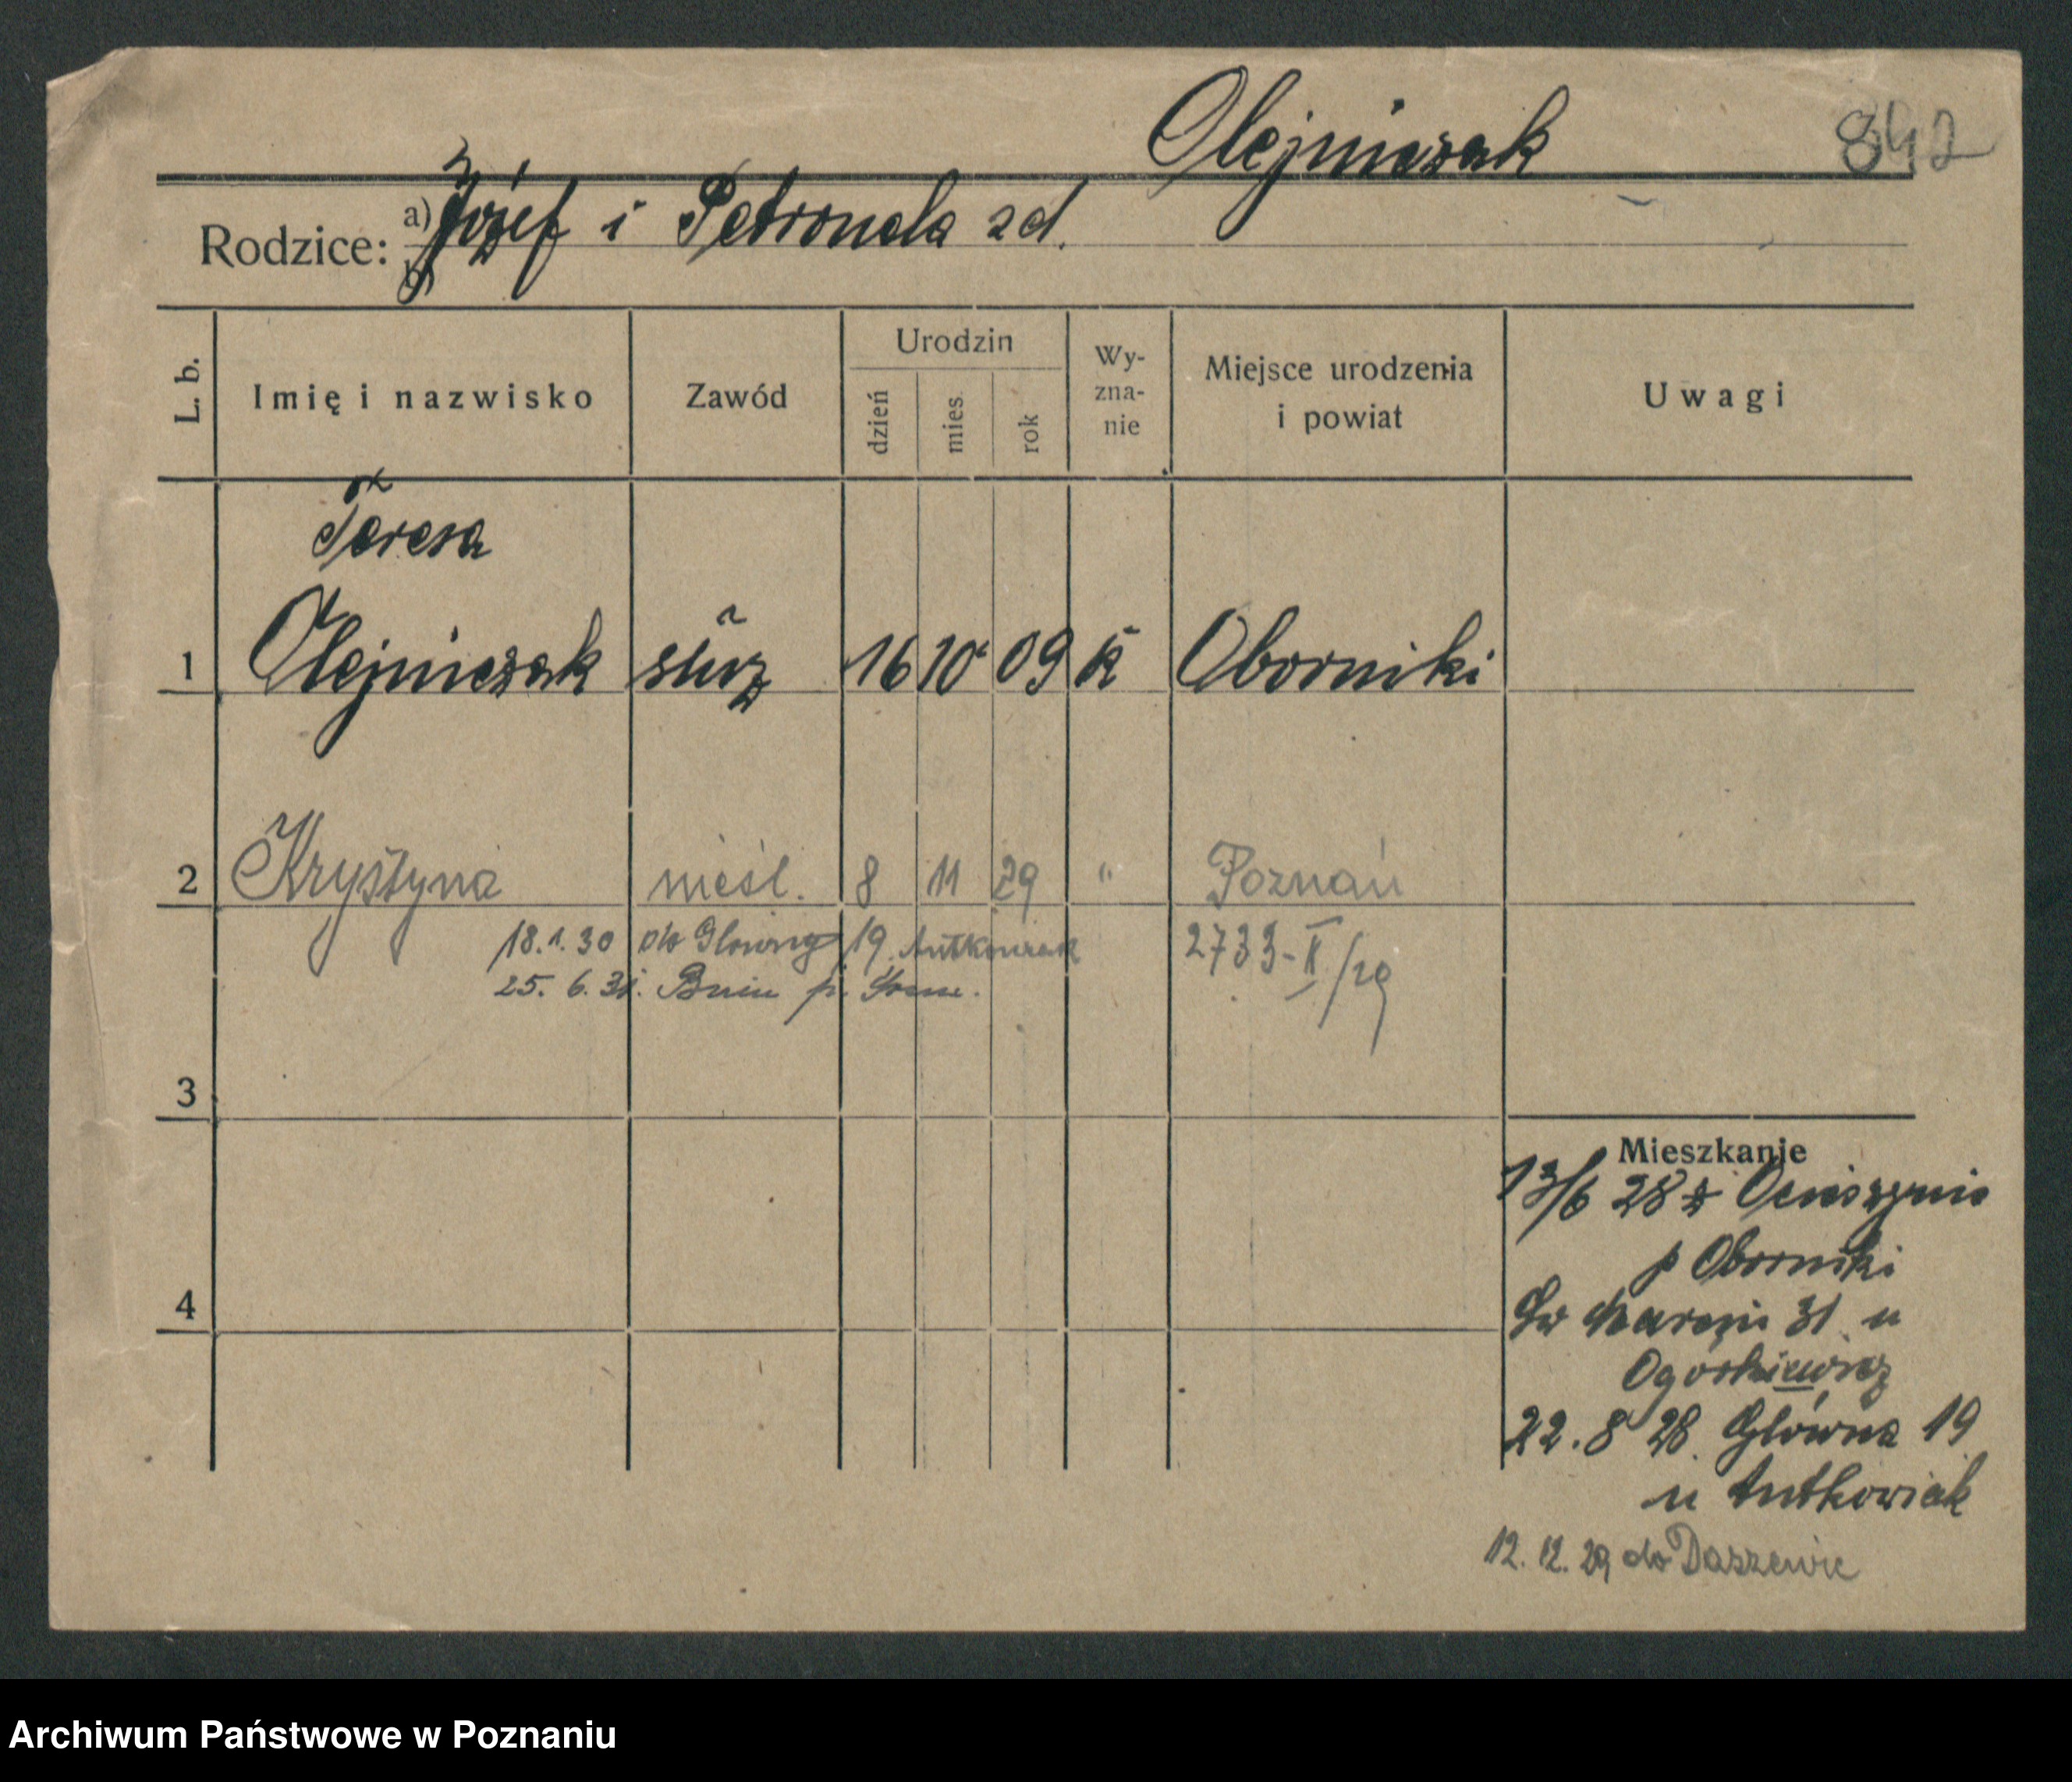 Olejniczak 842
Rodzice: a) Józef i Petronela zd.
b)
L. b. Imię i nazwisko Zawód Urodzin dzień mies. rok Wyznanie Miejsce urodzenia i powiat Uwagi
Teresa
1 Olejniczak służ 16 10 09 k Oborniki
2 Krystyna nieśl. 8 11 29 " Poznań
18.1.30 do Główny 19 Antkowiak 2733-II/29
25. 6. 31. Bnin p. Śrem.
3
Mieszkanie
13/6 28 z Ocieszynie
p Oborniki
4
Św Marcin 31 u
Ogórkiewicz
22.8 28 Główna 19
u Antkowiak
12. 12. 29 do Daszewic
Archiwum Państwowe w Poznaniu